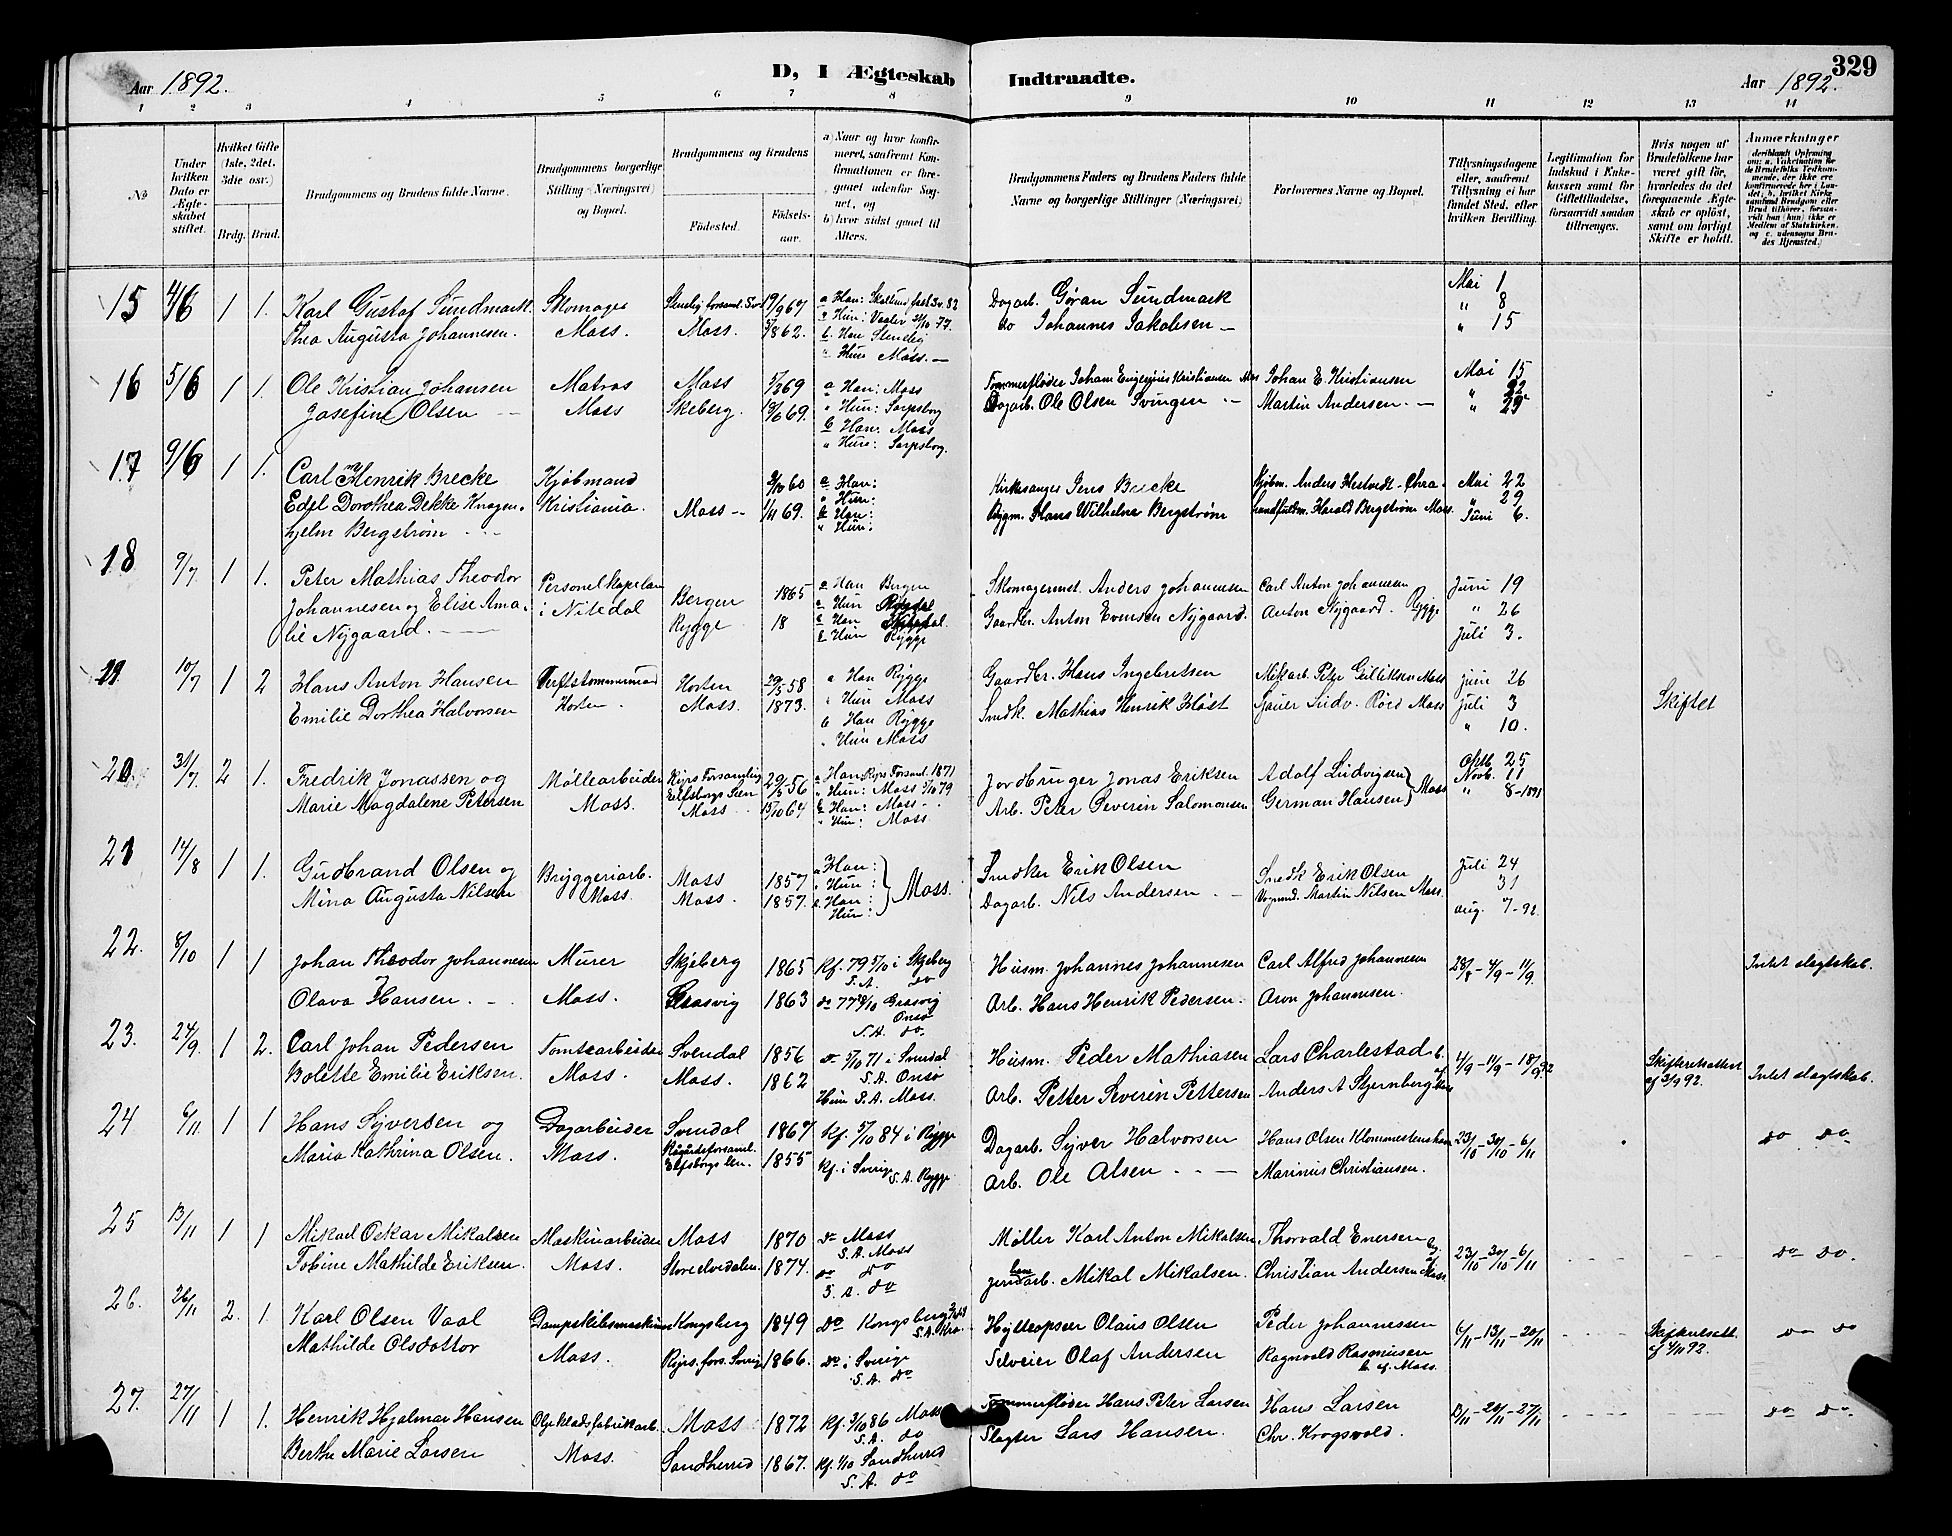 329
D, I Ægteskab Indtraadte.
Aar 1892.
Aar 1892.
1 2 3 4 5 6 7 8 9 10 11 12 13 14
№
Under hvilken Dato er Ægteskabet stiftet.
Hvilket Gifte (1ste, 2det, 3die osv.)
Brdg. Brud.
Brudgommens og Brudens fulde Navne.
Brudgommens borgerlige Stilling (Næringsvei) og Bopæl.
Brudgommens og Brudens
Fødested.
Fødselsaar.
a) Naar og hvor konfirmeret, saafremt Konfirmationen er foregaaet udenfor Sognet, og
b) hvor sidst gaaet til Alters.
Brudgommens Faders og Brudens Faders fulde Navne og borgerlige Stillinger (Næringsvei)
Forlovernes Navne og Bopæl.
Tillysningsdagene eller, saafremt Tillysning ei har fundet Sted, efter hvilken Bevilling.
Legitimation for Indskud i Enkekassen samt for Giftetilladelse, forsaavidt saadan tiltrænges.
Hvis nogen af Brudefolkene har været gift før, hvorledes da det foregaaende Ægteskab er opløst, samt om lovligt Skifte er holdt.
Anmerkninger
15 4/6 1 1. Karl Gustaf Sundmark Skomager 19/9 67 a Han: Dagarb. Gøran Sundmark Mai 1
" 8
Thea Augusta Johannesen. Moss. Moss. 1862. " Hun: Vaaler 77. do Johannes Jakobsen — " 15
b. Han
" Hun Moss. —
16 5/6 1 1. Ole Kristian Johansen Matros Moss 69 a Han: Moss Tømmerfløder Johan Kristiansen Moss Johan E. Kristiansen Mai 15
" 22
Josefine Olsen — Moss Skeberg. 69. " Hun: Sarpsborg Dagarb. Ole Olsen Svingen — Martin Andersen. — " 29
b Han: Moss
" Hun: Sarpsborg.
17 9/6 1 1. Carl Henrik Brecke Kjøbmand 60 a Han: Kirkesanger Jens Brecke Kjøbm. Anders Hestvedt - Chra. Mai 22
" Hun: " 29
Edel Dorothea Dekke Knagen- Kristiania. Moss — 69. b Han: Bygm. Hans Wilhelm Bergstrøm Harald Bergstrøm Moss. Juni 6.
hjelm Bergstrøm " Hun:
18 9/7 1 1. Peter Mathias Theodor Personelkapelan Bergen 1865 a Han Bergen Skomagermst. Anders Johannesen Carl Anton Johannesen Juni 19
Johannesen og Elise Ama- i Nitedal Rygge 18 " Hun Gaardbr. Anton Evensen Nygaard. Anton Nygaard. Rygge " 26
lie Nygaard. b Han Nitedal. Juli 3.
b Hun Rygge
19 10/7 1 2 Hans Anton Hansen Verftstømmermand Horten 29/5 58 a Han Rygge Gaardbr. Hans Ingebretsen Peter Moss Juni 26
Emilie Dorthea Halvorsen Horten. Moss. 1873. " Hun Moss Snedk. Mathias Henrik Høst Ludv. Røed Moss Juli 3 Skiftet
b Han Rygge " 10.
" Hun Moss
20. 31/7 2 1. Fredrik Jonassen og Møllearbeider Ryrs Forsamling 29/5 56 a Han Ryrs Forsaml. 1871 Jordbruger Jonas Eriksen Adolf Ludvigsen Oktb. 25
Elfsborgs Len " Hun: Moss 5/10 79 Novb. 11
Marie Magdalene Petersen Moss. Moss 15/10 64 b Han: Moss Arb. Peter Severin Salomonsen German Hansen } Moss " 8 - 1891
" Hun: Moss
21 14/8 1 1. Gudbrand Olsen og Bryggeriarb. Moss 1857 a Han: Snedker Erik Olsen Snedk Erik Olsen Juli 24
" Hun: } Moss. 31
Mina Augusta Nilsen Moss. Moss. 1857. b. Han: Dagarb. Nils Andersen — Martin Nilsen Moss. aug. 7-92.
Hun:
22. 8/10 1 1 Johan Theodor Johannesen Murer Skjeberg 1865 Kf. 79 5/10 i Skjeberg Husm. Johannes Johannesen Carl Alfred Johannesen 28/8 - 4/9 - 11/9 Intet slægtskab.
S. A. do
Olava Hansen. — Moss. Græsvig 1863 do 77 Græsvig Arb. Hans Henrik Pedersen. Aron Johannesen.
Onsø
S. A. do.
23. 24/9 1 2. Carl Johan Pedersen Tomtearbeider Svendal 1856 do 5/10 71 i Svendal Husm. Peder Mathiasen Lars Charlestad 4/9 - 11/9 - 18/9 92 Skifteretsattest af 3/9 92. Intet slægtskab.
S. A. Onsø
Bolette Emilie Eriksen. Moss. Moss. 1862 Hun S. A. Moss. Arb. Petter Severin Pettersen Anders A Stjernberg
24 6/11 1 1 Hans Syversen og Dagarbeider Svendal 1867 Kf. 5/10 84 i Rygge Dagarb. Syver Halvorsen Hans Olsen 23/10 - 30/10 - 6/11 do do
Maria Kathrina Olsen. Moss. Elfsborgs len. 1855 Kf. i Sverige S. A. Rygge Arb. Ole Olsen — Marinius Christiansen.
25 13/11 1 1 Mikael Oskar Mikalsen Maskinarbeider Moss 1870 do Moss Møller Karl Anton Mikalsen Thorvald Enersen 23/10 - 30/10 - 6/11 do do.
S. A. Moss
Tobine Mathilde Eriksen. Moss. Storeelvedalen. 1874. do do Jernbanearb. Mikal Mikalsen. Christian Andersen af Moss
S. A. do
26. 26/11 2. 1. Karl Olsen Vaal Dampskibsmaskin Kongsberg 1849 do Kongsberg Hyttopser Olaus Olsen Peder Johannessen 6/11 - 13/11 - 20/11 af 4/11 92. do do
Mathilde Olsdotter Moss. Ryrs. fors. Sverig 1866. do i Sverige Olaf Andersen Ragnvald Rasmusen
S. A. do b. af. Moss.
27. 27/11 1 1. Henrik Hjalmar Hansen Oljeklædsfabrikarb. Moss 1872 Kf. 3/10 86 Moss Tømmerfløder Hans Peter Larsen Hans Larsen 13/11 - 20/11 - 27/11 do do.
S. A. do
Berthe Marie Larsen Moss. Sandherred 1867. Kf. 1/10 Sandherred Slagter Lars Hansen. Chr. Krogsvold.
S. A. do